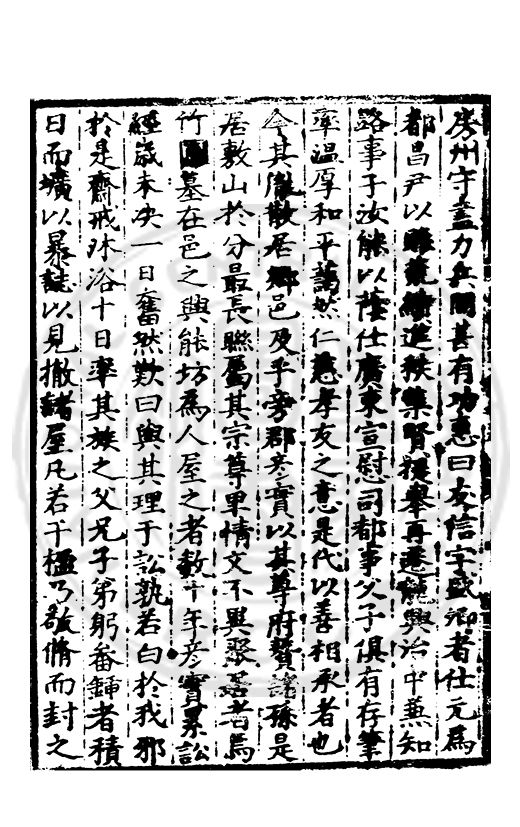 房州守盡力兵間甚有功惠曰友信字盛卿者仕元為
都昌尹以賑荒績進秩集賢提舉再遷龍興治中兼知
路事子汝能以蔭仕廣東宣慰司都事父子俱有存筆
率温厚和平藹然仁慈孝友之意是代以善相承者也
今其胤散居鄉邑及乎旁郡彥實以其尊府贅諸孫是
居敷山於分最長聯屬其宗尊卑情文不異聚居者為
竹墓在邑之興能坊為人屋之者數十年彥實累訟
經歲未决一日奮然歎曰與其理于訟孰若白於我邪
於是齋戒沐浴十日率其族之父兄子弟躬畚鍤者積
日而壙以暴誌以見撤諸屋凡若干楹乃敬脩而封之